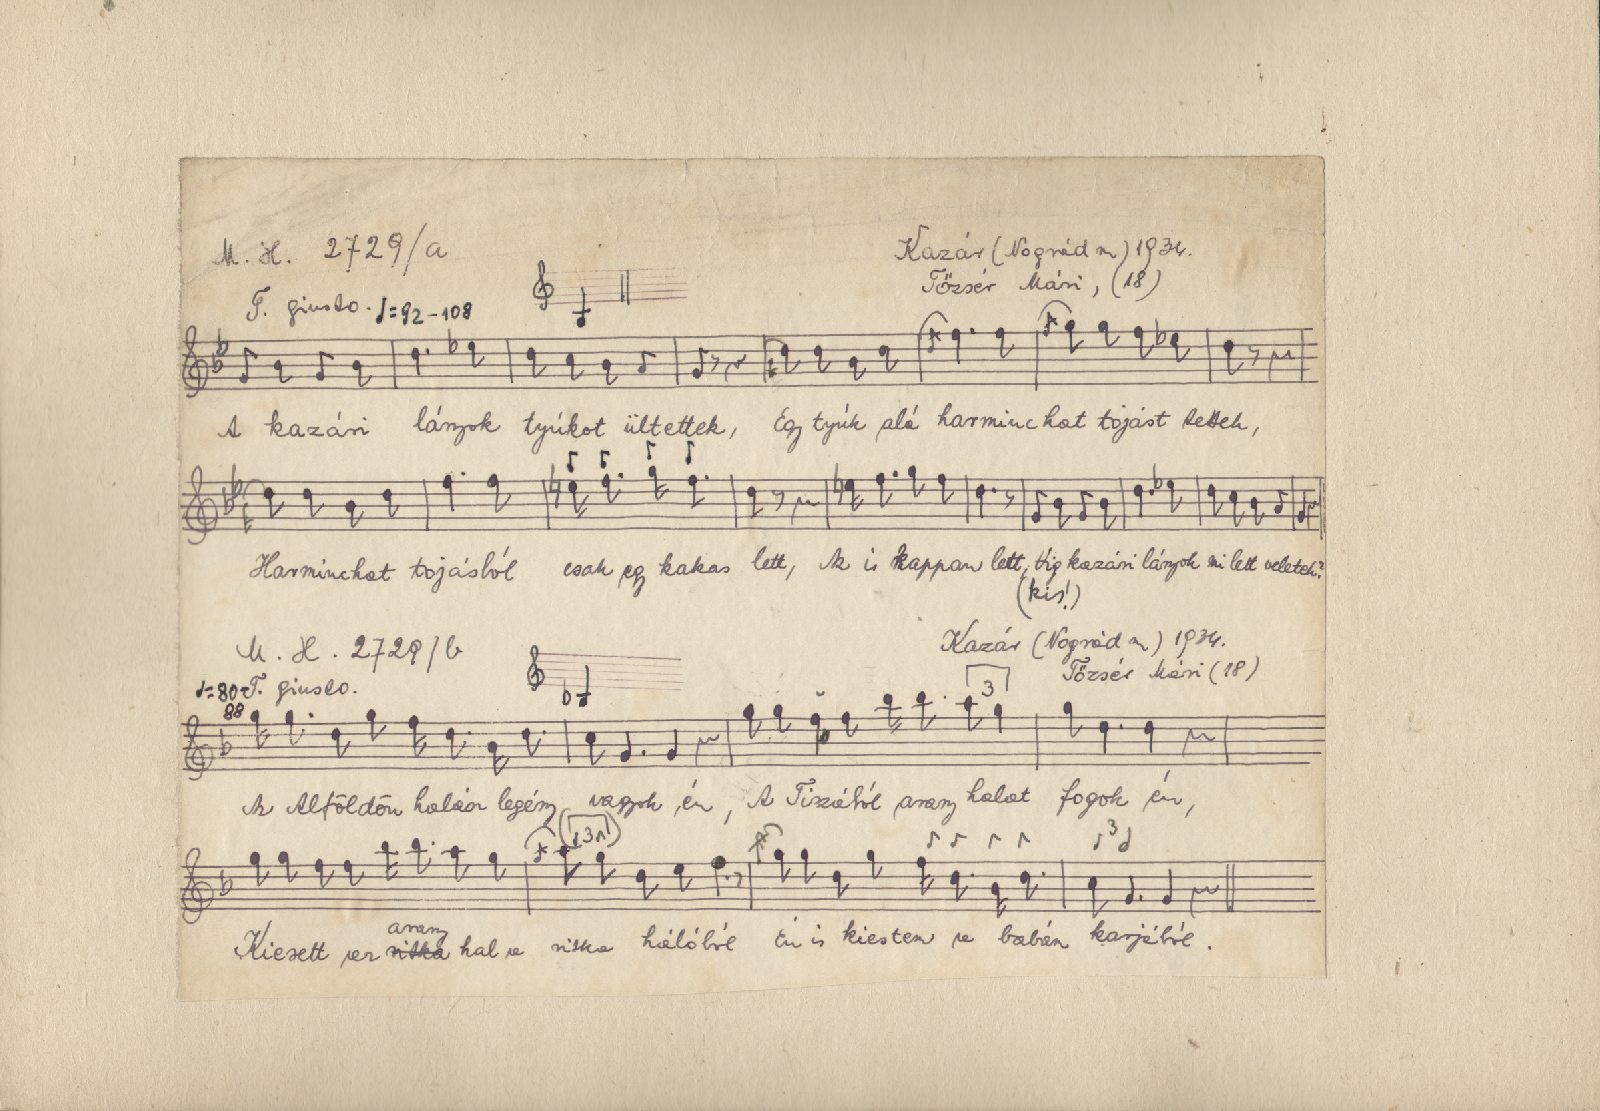 M. H. 2729/a
Kazár (Nográd m) 1934.
Tőzsér Mári, (18)
T. giusto. ♩=92-108
A kazári lányok tyúkot ültettek, Egy tyúk alá harminchat tojást tettek,
Harminchat tojásból csak egy kakas lett, Az is kappan lett, kazári lányok mi lett veletek?
(kis!)
M. H. 2729/b
Kazár (Nográd m) 1934.
Tőzsér Mári (18)
♩=80-88 T. giusto.
3
Az Alföldön halász legény vagyok én, A Tiszából arany halat fogok én,
3
3
arany
Kiesett az ritka hal a ritka hálóból Én is kiestem a babám karjából.